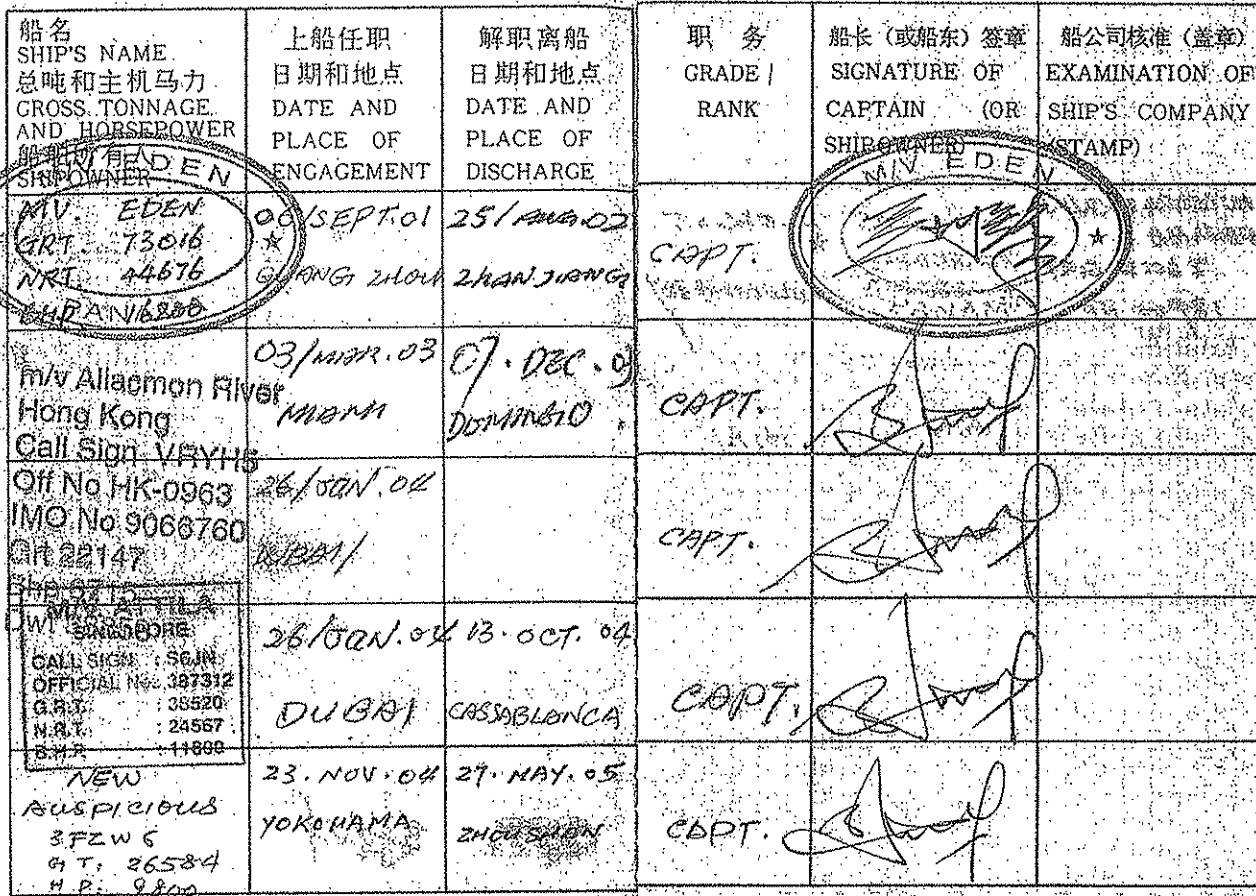 船名
SHIP'S NAME
总吨和主机马力
GROSS TONNAGE
AND HORSEPOWER
船舶所有人
SHIPOWNER
上船任职
日期和地点
DATE AND
PLACE OF
ENGAGEMENT
解职离船
日期和地点
DATE AND
PLACE OF
DISCHARGE
职 务
GRADE /
RANK
船长（或船东）签章
SIGNATURE OF
CAPTAIN (OR
SHIPOWNER)
船公司核准（盖章）
EXAMINATION OF
SHIP'S COMPANY
(STAMP)
EDEN
MV. EDEN
GRT. 73016
NRT. 44676
BHP 16800
06/SEPT.01
GUANG ZHOU
25/AUG.02
ZHANJIANG
CAPT.
M/V EDEN
PANAMA
m/v Aliacmon River
Hong Kong
Call Sign VRYH5
Off No HK-0963
IMO No 9066760
Grt 22147
03/MAR.03
MIAMI
07.DEC.03
DOMINGO
CAPT.
26/JAN.04
DUBAI
CAPT.
M/V ATTILA
SINGAPORE
CALL SIGN : S6JN
OFFICIAL No. 387312
G.R.T. : 38520
N.R.T. : 24567
B.H.P. : 11800
26/JAN.04
DUBAI
13.OCT.04
CASSABLANCA
CAPT.
NEW
AUSPICIOUS
3FZW6
GT: 26584
HP: 9800
23.NOV.04
YOKOHAMA
27.MAY.05
ZHOUSHAN
CAPT.